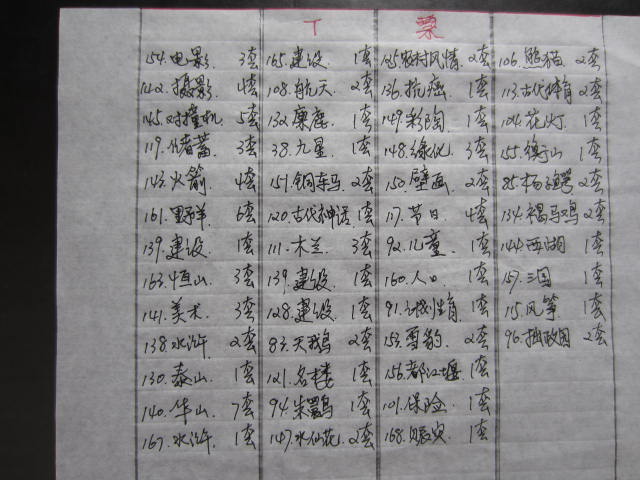 T 票
154.电影. 3套 165.建设. 1套 125.农村风情.2套 106.熊猫. 2套
142.摄影. 4套 108.航天. 2套 136.抗癌. 1套 113.古代体育 2套
145.对撞机. 5套 132.麋鹿. 1套 149.彩陶. 1套 104.花灯. 1套
119.储蓄. 3套 38.九星. 1套 148.绿化. 3套 155.衡山. 1套
143.火箭. 4套 151.铜车马. 2套 150.壁画. 2套 85.杨子鳄 2套
161.野羊. 6套 120.古代神话. 1套 117.节日. 4套 134.褐马鸡 2套
139.建设. 1套 111.木兰. 3套 92.儿童. 1套 144.西湖. 1套
163.恒山. 3套 139.建设. 1套 160.人口. 1套 157.三国. 1套
141.美术. 3套 128.建设. 1套 91.计划生育. 1套 15.风筝. 1套
138.水浒. 2套 83.天鹅. 2套 153.雪豹. 2套 96.拙政园. 2套
130.泰山. 1套 121.名楼. 1套 156.都江堰. 1套
140.华山. 7套 94.朱鹮. 1套 101.保险. 1套
167.水浒. 1套 147.水仙花. 2套 168.赈灾. 1套